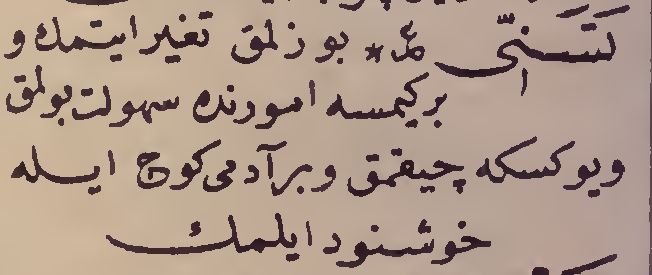 تَسَنّي ع * بوزلمق تغير ايتمك و
بركيمسه امورنده سهولت بولمق
ويوكسكه چيقمق وبرآدمى كوج ايسله
خوشنود ايلمك